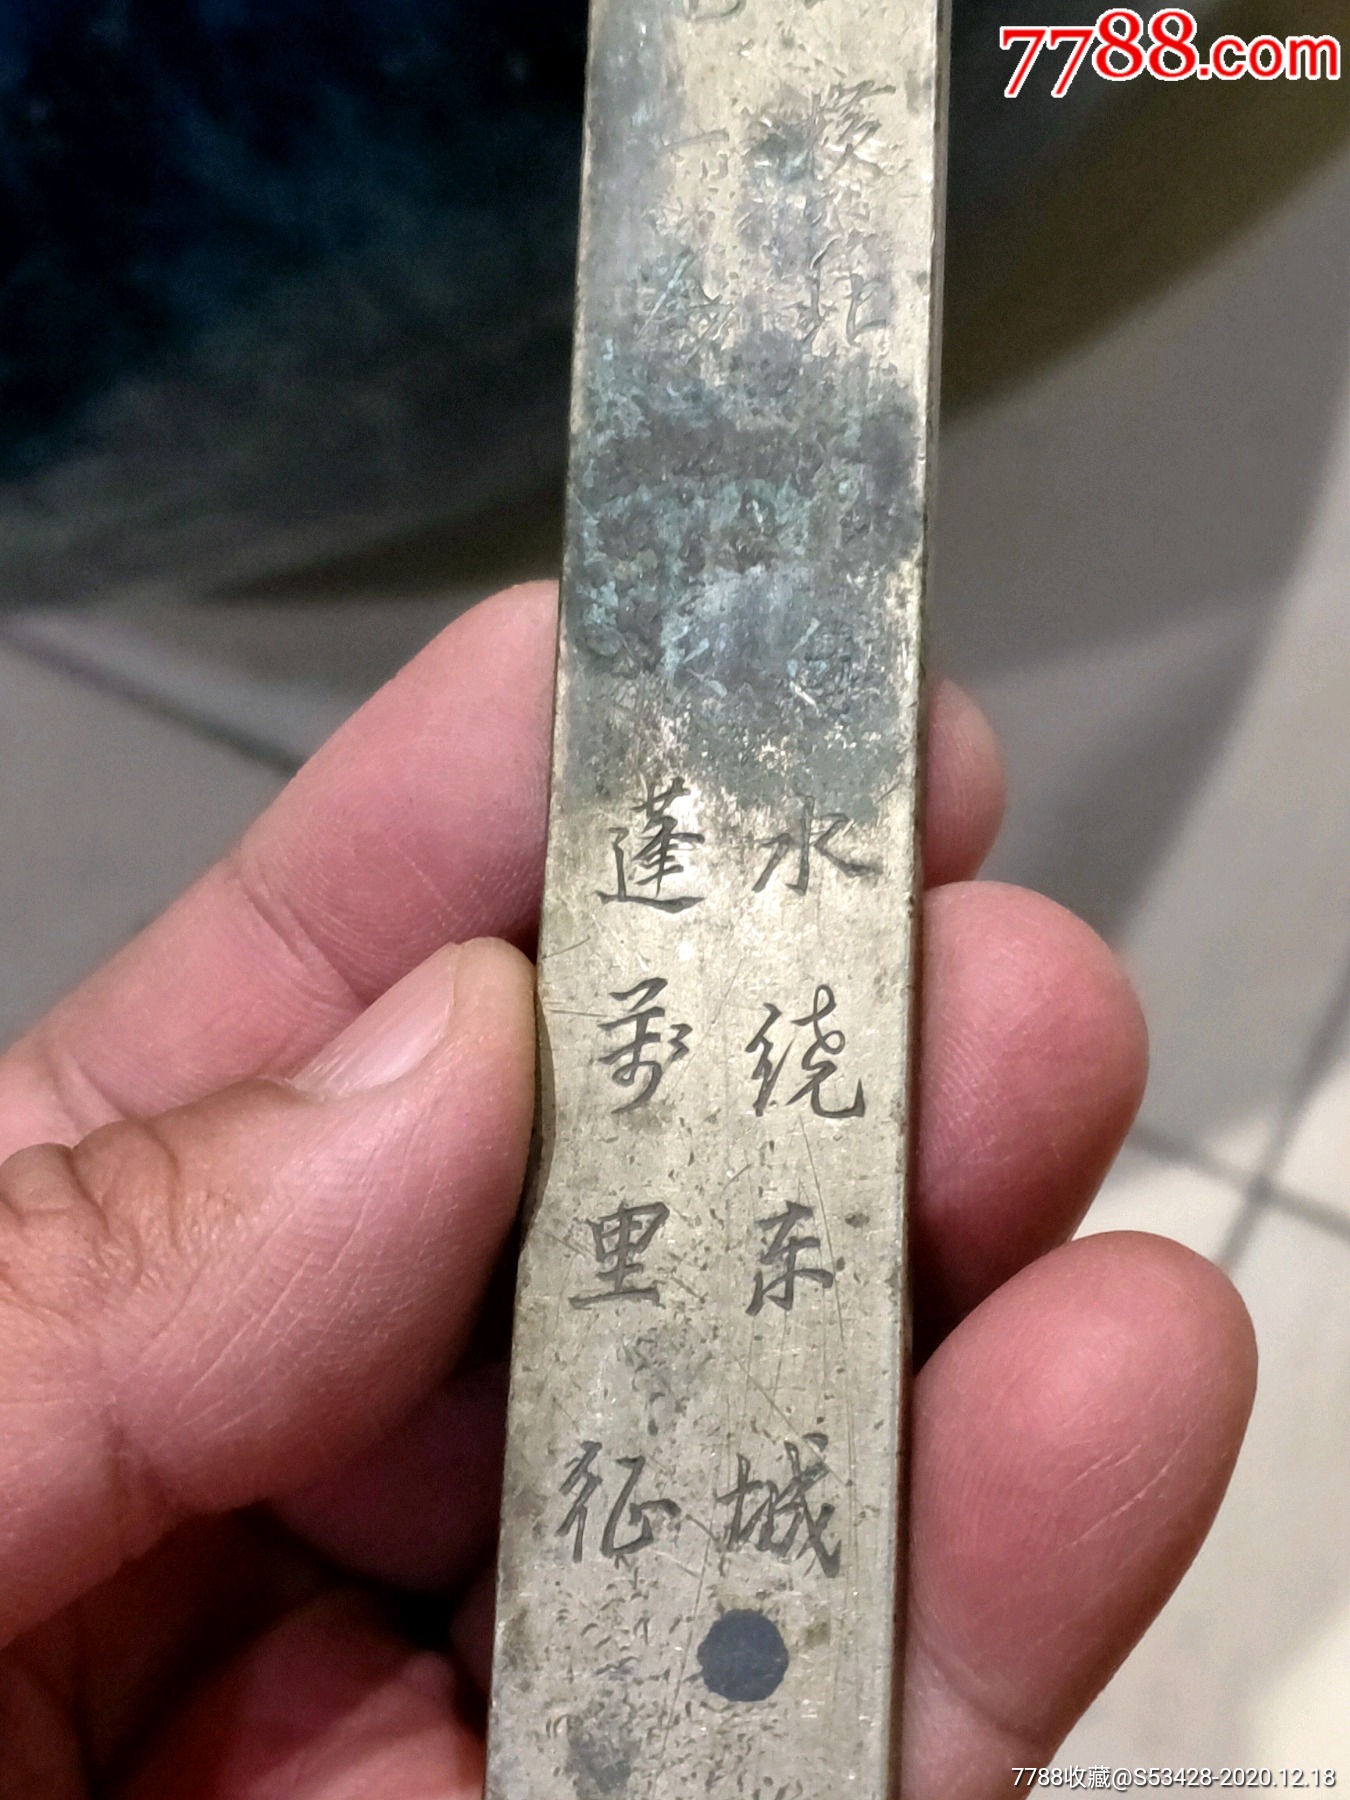 7788.com
横北白水绕东城
一为蓬萬里征
7788收藏@S53428-2020.12.18